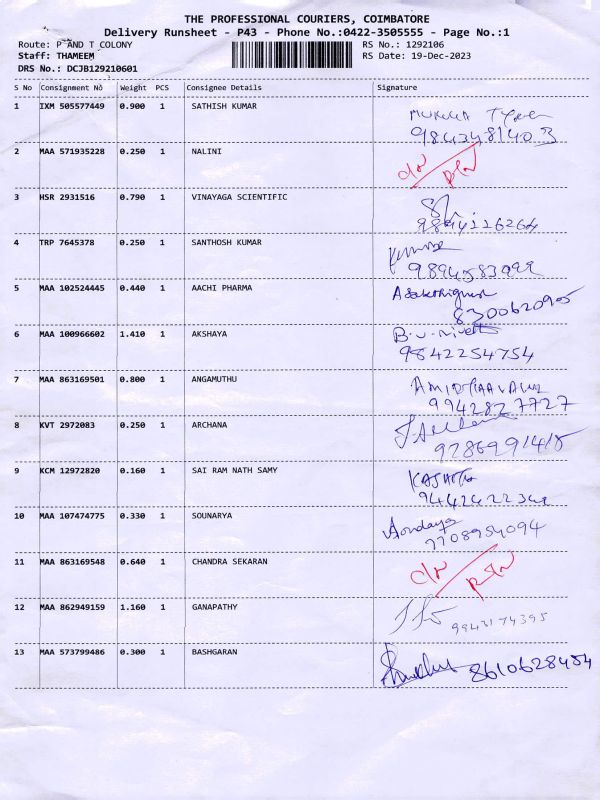 THE PROFESSIONAL COURIERS, COIMBATORE
Delivery Runsheet - P43 - Phone No.:0422-3505555 - Page No.:1
Route: P AND T COLONY
RS No.: 1292106
Staff: THAMEEM
RS Date: 19-Dec-2023
DRS No.: DCJB129210601
S No Consignment No Weight PCS Consignee Details Signature
1 IXM 505577449 0.900 1 SATHISH KUMAR
9843481403
2 MAA 571935228 0.250 1 NALINI
3 HSR 2931516 0.790 1 VINAYAGA SCIENTIFIC
4 TRP 7645378 0.250 1 SANTHOSH KUMAR
5 MAA 102524445 0.440 1 AACHI PHARMA
8300620905
6 MAA 100966602 1.410 1 AKSHAYA
9842254754
7 MAA 863169501 0.800 1 ANGAMUTHU
9942827727
8 KVT 2972083 0.250 1 ARCHANA
9786991415
9 KCM 12972820 0.160 1 SAI RAM NATH SAMY
10 MAA 107474775 0.330 1 SOUNARYA
7708954094
11 MAA 863169548 0.640 1 CHANDRA SEKARAN
12 MAA 862949159 1.160 1 GANAPATHY
9943174395
13 MAA 573799486 0.300 1 BASHGARAN
8610628454